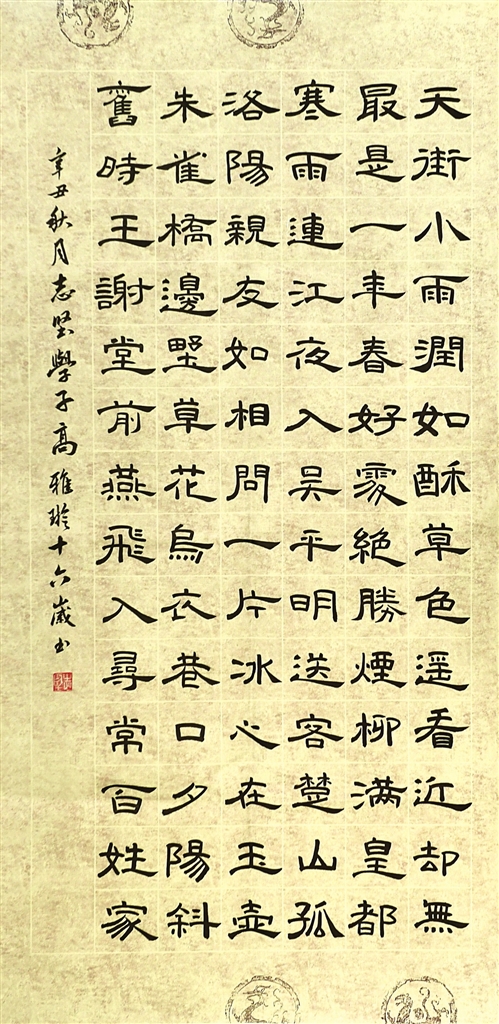 天街小雨潤如酥草色遥看近却無
最是一年春好處絶勝煙柳满皇都
寒雨連江夜入吴平明送客楚山孤
洛陽親友如相問一片冰心在玉壺
朱雀橋邊野草花烏衣巷口夕陽斜
舊時王謝堂前燕飛入尋常百姓家
辛丑秋月志堅學子高雅玲十六歲书